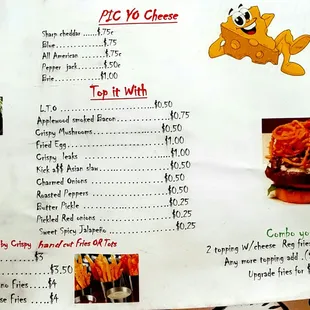 PIC YO Cheese
Sharp cheddar ......$.75c
Blue...............$.75
All American .......$.75c
Pepper jack.....$.50c
Brie...............$1.00
Top it With
L.T.O ..............................$0.50
Applewood smoked Bacon...............$0.75
Crispy Mushrooms.....................$0.50
Fried Egg............................$1.00
Crispy leaks .......................$1.00
Kick a$$ Asian slaw..................$0.50
Charmed Onions ......................$0.50
Roasted Peppers .....................$0.50
Butter Pickle .......................$0.25
Pickled Red onions ..................$0.25
Sweet Spicy Jalapeño ................$0.25
by Crispy hand cut fries OR Tots
$3
$3.50
no Fries.....$4
se Fries ....$4
Combo yo
2 topping W/cheese Reg fries
Any more topping add .(
Upgrade fries for $